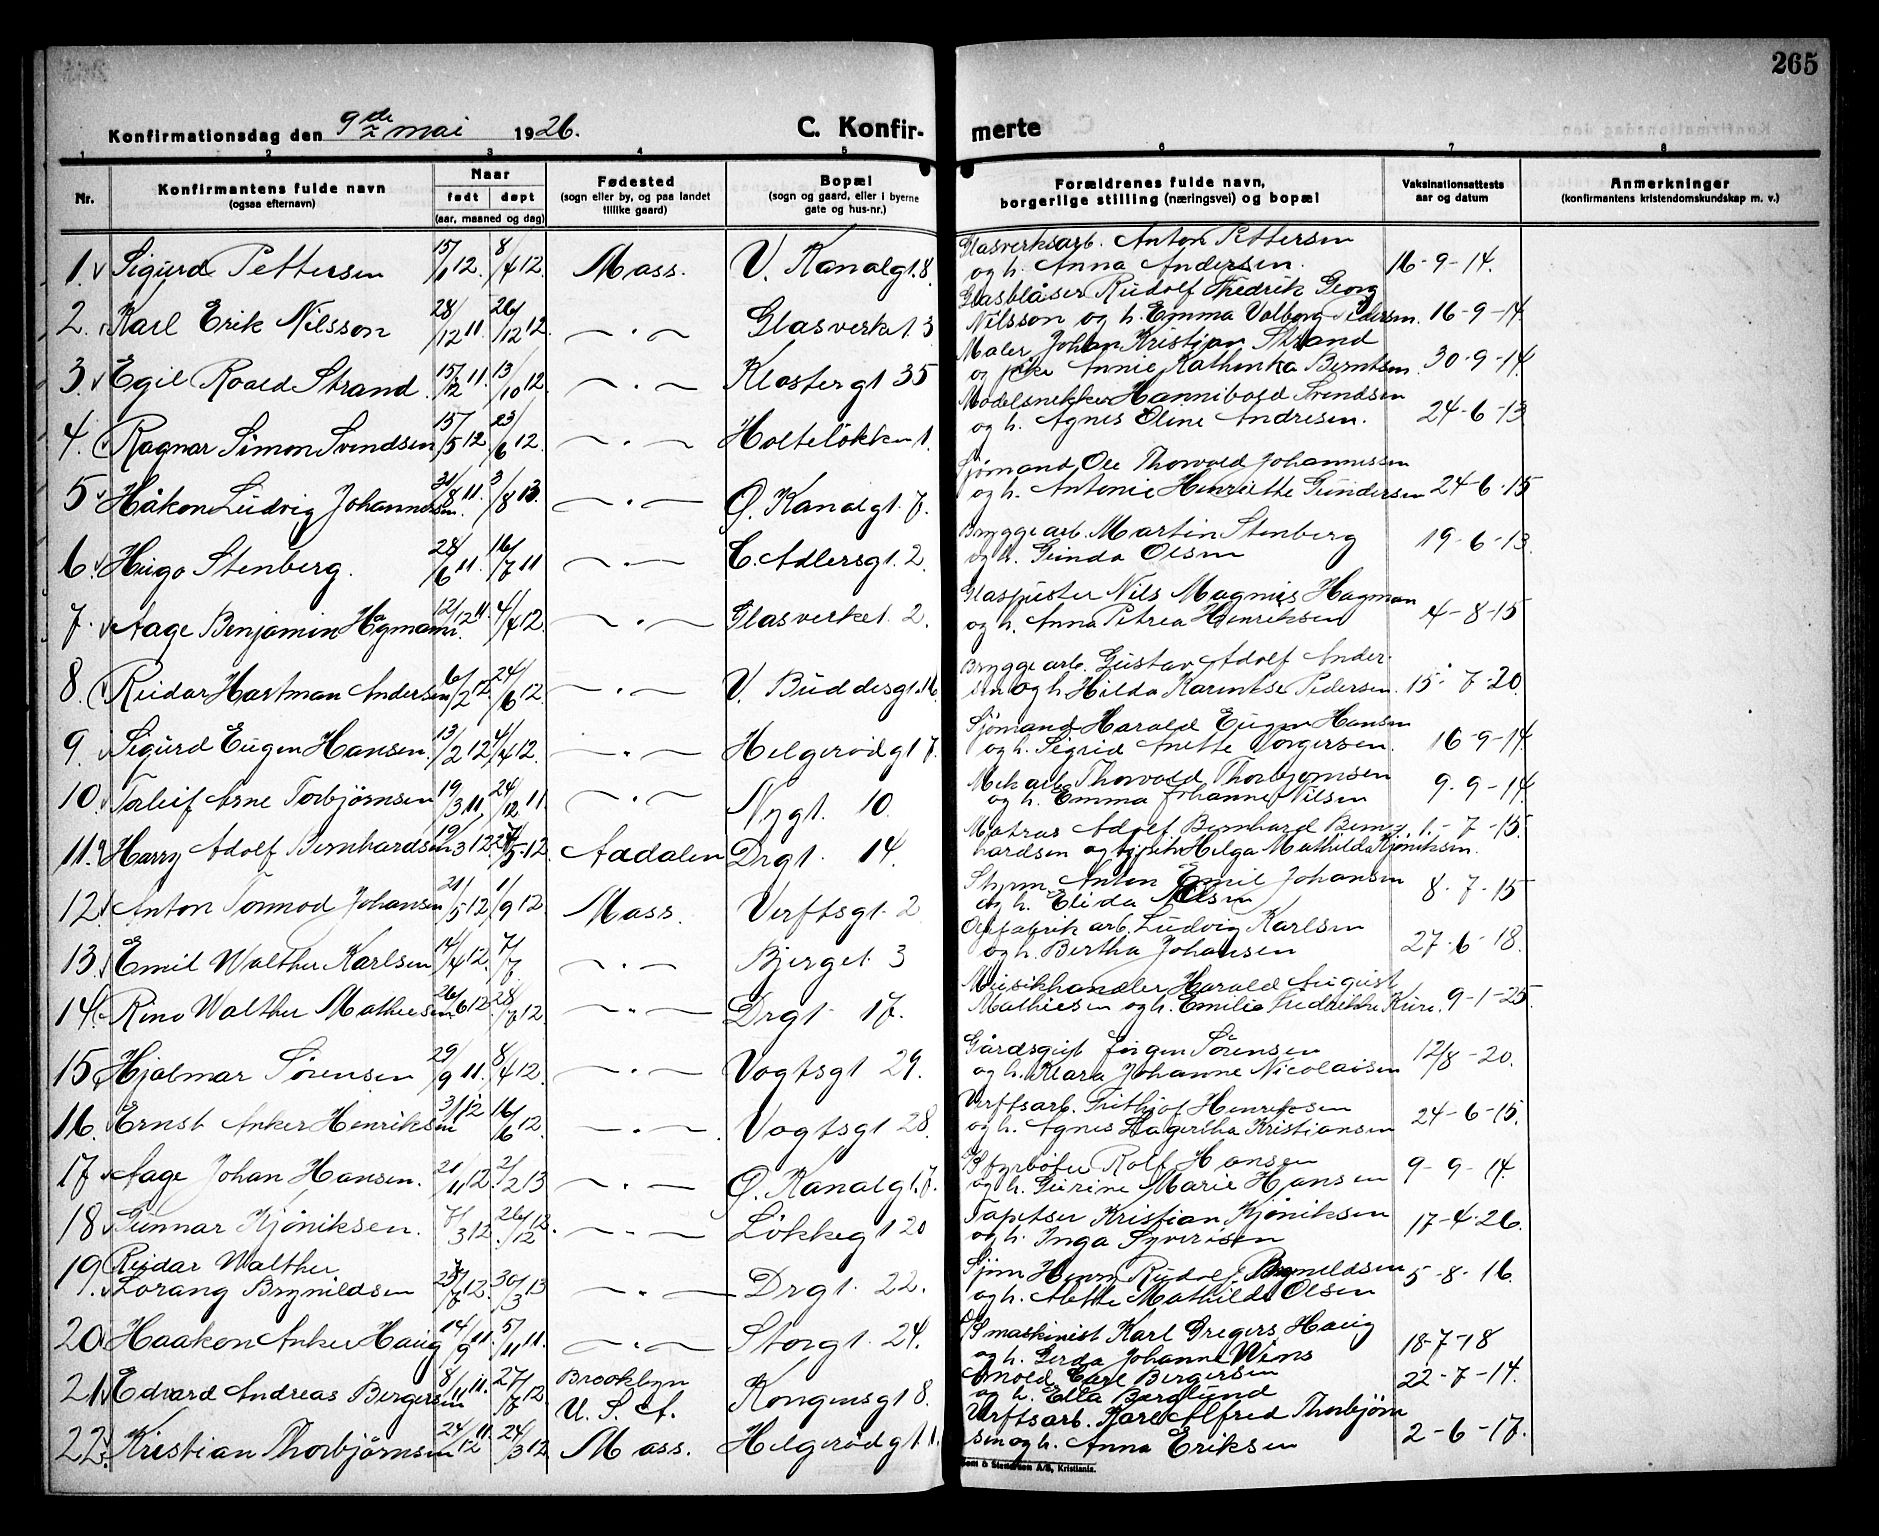 265
Konfirmationsdag den 9de mai 1926.
C. Konfirmerte
1 2 3 4 5 6 7 8
Nr.
Konfirmantens fulde navn
(ogsaa efternavn)
Naar
født døpt
(aar, maaned og dag)
Fødested
(sogn eller by, og paa landet
tillike gaard)
Bopæl
(sogn og gaard, eller i byerne
gate og hus-nr.)
Forældrenes fulde navn,
borgerlige stilling (næringsvei) og bopæl
Vaksinationsattests
aar og datum
Anmerkninger
(konfirmantens kristendomskundskap m. v.)
1. Sigurd Pettersen 15/1 12. 8/4 12. Moss. V. Kanalgt. 8. Glasverksarb. Anton Pettersen
og h. Anna Andersen. 16-9-14.
2. Karl Erik Nilsson 28/12 11 26/12 12 — . — Glasverket 3 Glasblåser Rudolf Fredrik Georg
Nilsson og h. Emma Valborg Pedersen. 16-9-14.
3. Egil Roald Strand. 15/12 11. 13/10 12 — . — Klostergt 35 Maler Johan Kristian Strand
og Annie Kathinka Berntsen. 30-9-14
4. Ragnar Simon Svendsen 15/5 12 23/6 12 — . — Holteløkken 1. Modelsnekker Hannibald Svendsen
og h. Agnes Oline Andresen. 24-6-13
5 Håkon Ludvig Johannessen. 31/8 11. 3/8 13. — . — Ø. Kanalgt. 7. Sjømand Ole Thorvald Johannessen
og h. Antonie Henriette Gundersen 24-6-15
6. Hugo Stenberg. 28/6 11. 16/7 11 — . — C. Adlersgt. 2. Bryggearb. Martin Stenberg
og h. Gunda Olsen 19-6-13.
7. Aage Benjamin Hagmann. 12/12 11. 4/4 12. — . — Glasverket. 2. Glaspuster Nils Magnus Hagman
og h. Anna Petrea Henriksen 4-8-15
8. Reidar Hartman Andersen 6/2 12. 24/6 12 — . — V. Buddesgt. 16. Bryggearb. Gustav Adolf Ander-
sen og h. Hilda Karentse Pedersen. 15-7-20.
9. Sigurd Eugen Hansen. 13/2 12 4/4 12. — . — Helgerødgt 7. Sjømand Harald Eugen Hansen
og h. Sigrid Anette Torgersen. 16-9-14
10. Torleif Arne Torbjørnsen 19/3 11. 24/12 11 — . — Nygt. 10. Mek arb. Thorvald Thorbjørnsen
og h. Emma Johanne Nilsen 9-9-14.
11. Harry Adolf Bernhardsen 19/3 12. 27/5-12. Aadalen Drgt. 14. Matros Adolf Bernhard Bern-
hardsen og Helga Mathilda Kjøniksen. 1.-7-15.
12. Anton Tormod Johansen 21/5 12 1/9 12 Moss. Verftsgt. 2 Styrm. Anton Emil Johansen
og h. Elida Olsen 8-7-15
13. Emil Walther Karlsen 14/4 12. 7/7 — . — Bjerget. 3 Ølfabrik arb. Ludvig Karlsen
og h. Bertha Johansen 27-6-18.
14. Reino Walther Mathiesen 26/6 12. 28/7 12. — . — Drgt. 17. Musikhandler Harald August
Mathiesen og h. Emilie Fredrikke Kure. 9-1-25.
15. Hjalmar Sørensen 29/9 11. 8/4 12. — . — Vogtsgt 29. Gårdsgut Jørgen Sørensen
og h. Klara Johanne Nicolaisen 12/8-20.
16. Ernst Anker Henriksen 3/1 12 16/6 12. — . — Vogtsgt 28. Verftsarb. Frithjof Henriksen
og h. Agnes Hagertha Kristiansen 24-6-15.
17. Aage Johan Hansen. 21/11 12. 2/2 13 — . — Ø. Kanalgt. 7. Fyrbøter Rolf Hansen
og h. Gurine Marie Hansen 9-9-14.
18 Gunnar Kjøniksen. 7/3 12. 26/12 12. — . — Løkkegt 20 Tapetser Kristian Kjøniksen
og h. Inga Syversen 17-4-26.
19. Reidar Walther
Lorang Brynildsen 25/7 12. 30/3 13 — . — Drgt. 22. Sjøm Henry Rudolf Brynildsen
og h. Alette Mathilde Olsen 5-8-16.
20. Haakon Anker Haug 14/9 11. 5/11 11. — . — Storgt. 24. maskinist Karl Gregers Haug
og h. Gerda Johanne Wins 18-7-18
21. Edvard Andreas Bergersen 8/11 11. 27/7 12. Brooklyn
U. S. A. Kongensgt 8. Arnold Carl Bergersen
og h. Ella Berglund 22-7-14.
22. Kristian Thorbjørnsen 24/12 11. 24/3 12 Moss. Helgerødgt. 1. Verftsarb. Karl Alfred Thorbjørn
sen og h. Anna Eriksen 2-6-17.
A/S, Kristiania.